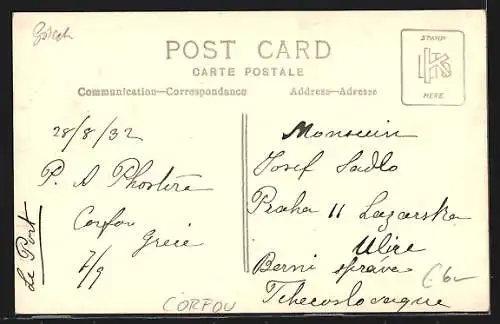 POST CARD
CARTE POSTALE
Communication—Correspondance
Address—Adresse
STAMP
HERE
28/8/32
P. A
Corfou
Grèce
7/9
Le Port
CORFOU
Monsieur
Josef Sadlo
Praha II Lazarska
Ulice
Berni správa
Tchecoslovaquie